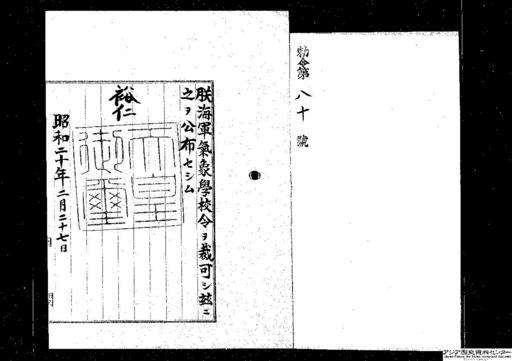 勅令第八十號
朕海軍氣象學校令ヲ裁可シ玆ニ
之ヲ公布セシム
裕仁
天皇御璽
昭和二十年二月二十七日
アジア歴史資料センター